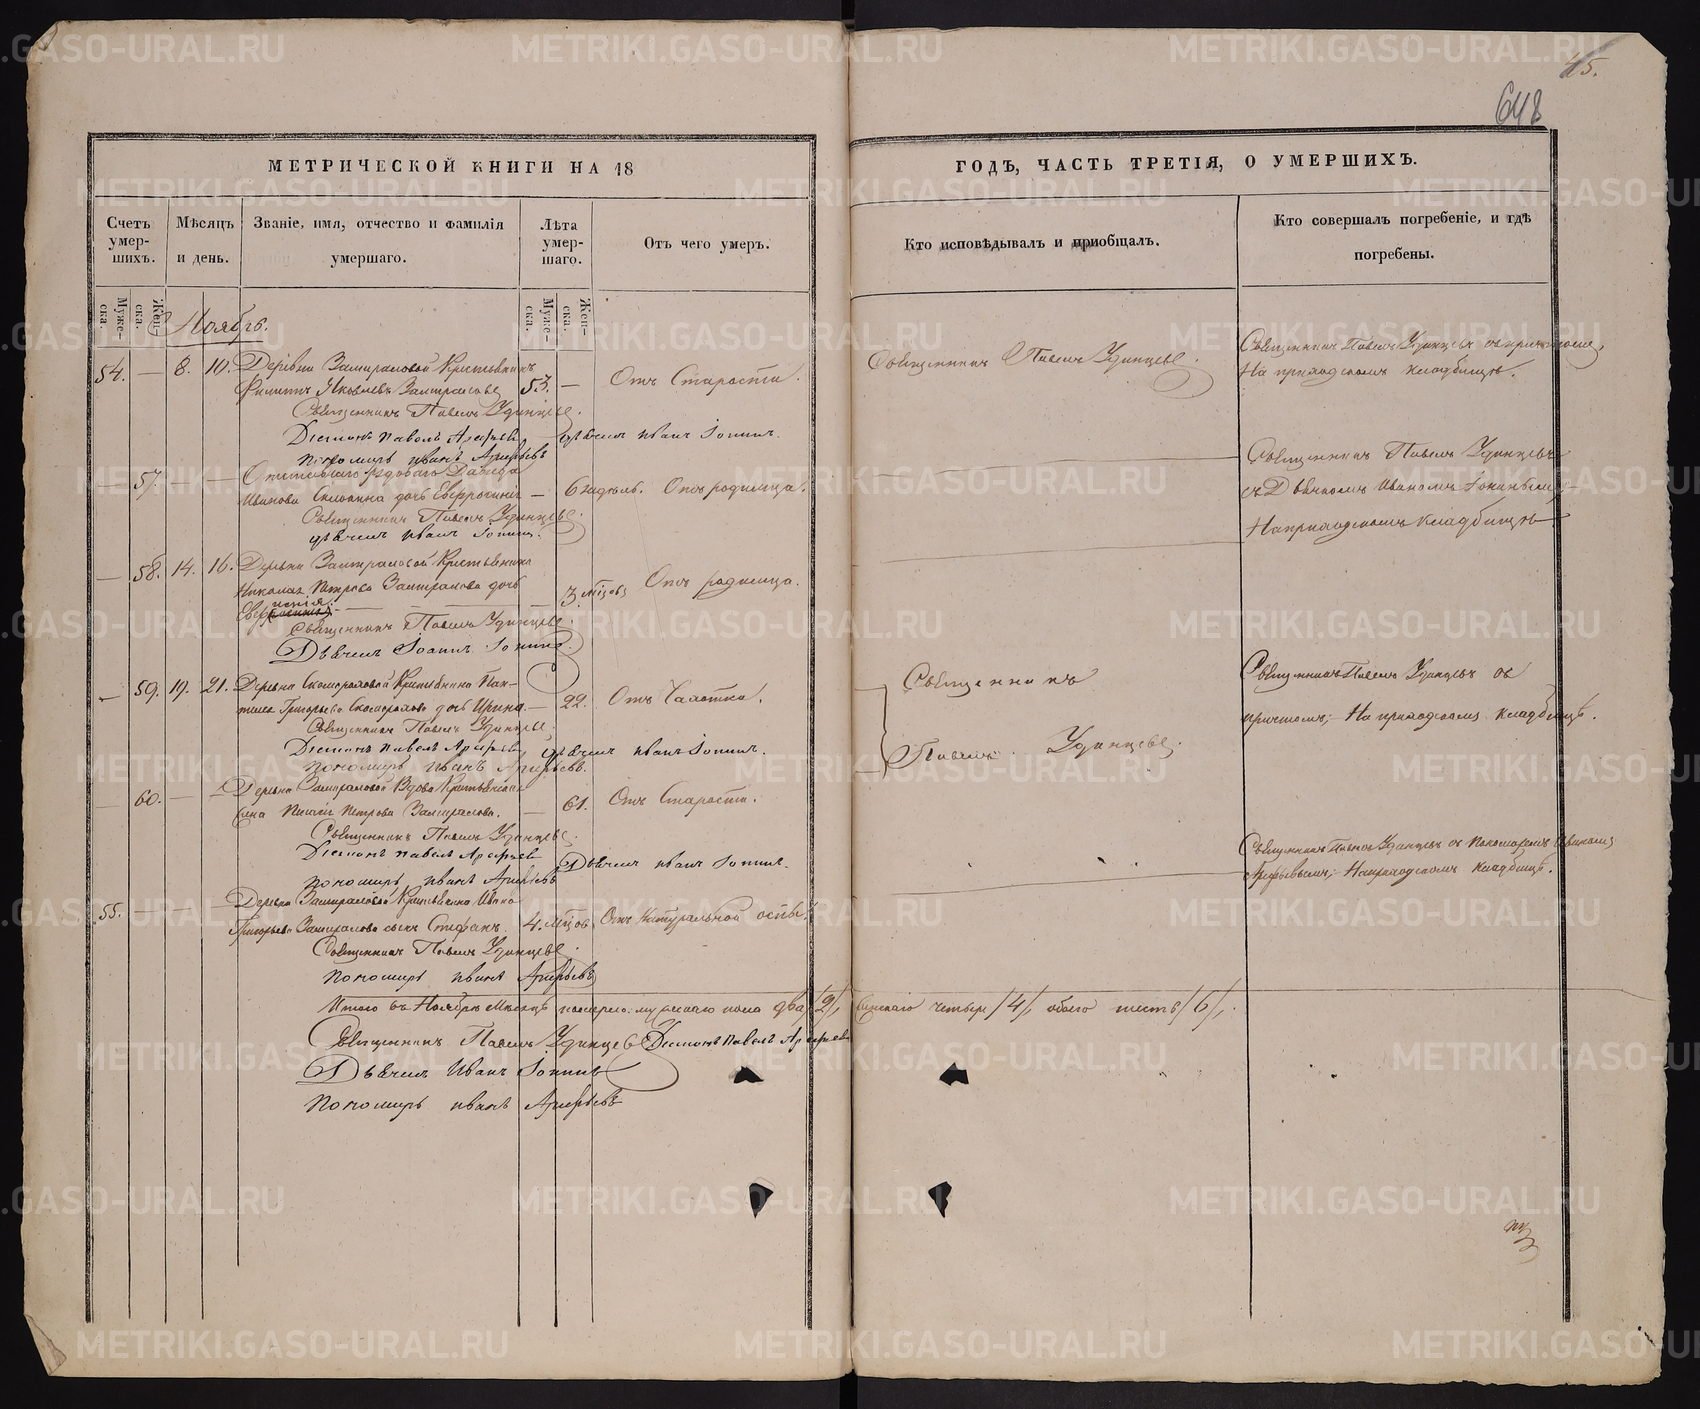 45.
648
МЕТРИЧЕСКОЙ КНИГИ НА 18
ГОДЪ, ЧАСТЬ ТРЕТІЯ, О УМЕРШИХЪ.
Счетъ умер- шихъ.
Мѣсяцъ и день.
Званіе, имя, отчество и фамилія умершаго.
Лѣта умер- шаго.
Отъ чего умеръ.
Кто исповѣдывалъ и приобщалъ.
Кто совершалъ погребеніе, и гдѣ погребены.
Муже- ска.
Жен- ска.
Муже- ска.
Жен- ска.
Ноябрь.
54. — 8. 10. Деревни Замираловой Крестьянинъ
Филиппъ Яковлевъ Замираловъ 53. — Отъ Старости.
Священникъ Павелъ Удинцевъ.
Священникъ Павелъ Удинцевъ
На приходскомъ кладбищѣ.
Священникъ Павелъ Удинцевъ.
Діаконъ Павелъ Арефьевъ Дьячекъ Иванъ Іонинъ.
Пономарь Иванъ Арефьевъ
— 57. — — Давида
Иванова дочь — 6 недѣль. Отъ родимца.
Священникъ Павелъ Удинцевъ
съ Дьячкомъ Иваномъ Іонинымъ
На приходскомъ кладбищѣ
Священникъ Павелъ Удинцевъ.
Дьячекъ Иванъ Іонинъ.
— 58. 14. 16. Деревни Замираловой Крестьянина
Николая Петрова Замиралова дочь
— 3 мѣсяцовъ Отъ родимца.
Священникъ Павелъ Удинцевъ.
Дьячекъ Іоаннъ Іонинъ.
— 59. 19. 21. Деревни Скоморовой Крестьянина Пан-
Григорьева дочь Ирина — 22. Отъ Чахотки.
Священникъ
Павелъ Удинцевъ.
Священникъ Павелъ Удинцевъ съ
причтомъ; На приходскомъ кладбищѣ.
Священникъ Павелъ Удинцевъ.
Діаконъ Павелъ Арефьевъ Дьячекъ Иванъ Іонинъ.
Пономарь Иванъ Арефьевъ.
— 60. — — Деревни Замираловой Вдова Крестьянская
Петрова Замиралова. — 61. Отъ Старости.
Священникъ Павелъ Удинцевъ.
Діаконъ Павелъ Арефьевъ Дьячекъ Иванъ Іонинъ.
Пономарь Иванъ Арефьевъ
55. — — Деревни Замираловой Крестьянина Ивана
Григорьева Замиралова сынъ Стефанъ. 4. мѣсяцовъ Отъ Натуральной оспы.
Священникъ Павелъ Удинцевъ съ Пономаремъ Иваномъ
Арефьевымъ; На приходскомъ кладбищѣ.
Священникъ Павелъ Удинцевъ.
Пономарь Иванъ Арефьевъ
Итого въ Ноябрѣ Мѣсяцѣ померло мужескаго пола два /2/, женскаго четыре /4/, обоего шесть /6/.
Священникъ Павелъ Удинцевъ Діаконъ Павелъ Арефьевъ
Дьячекъ Иванъ Іонинъ
Пономарь Иванъ Арефьевъ
METRIKI.GASO-URAL.RU